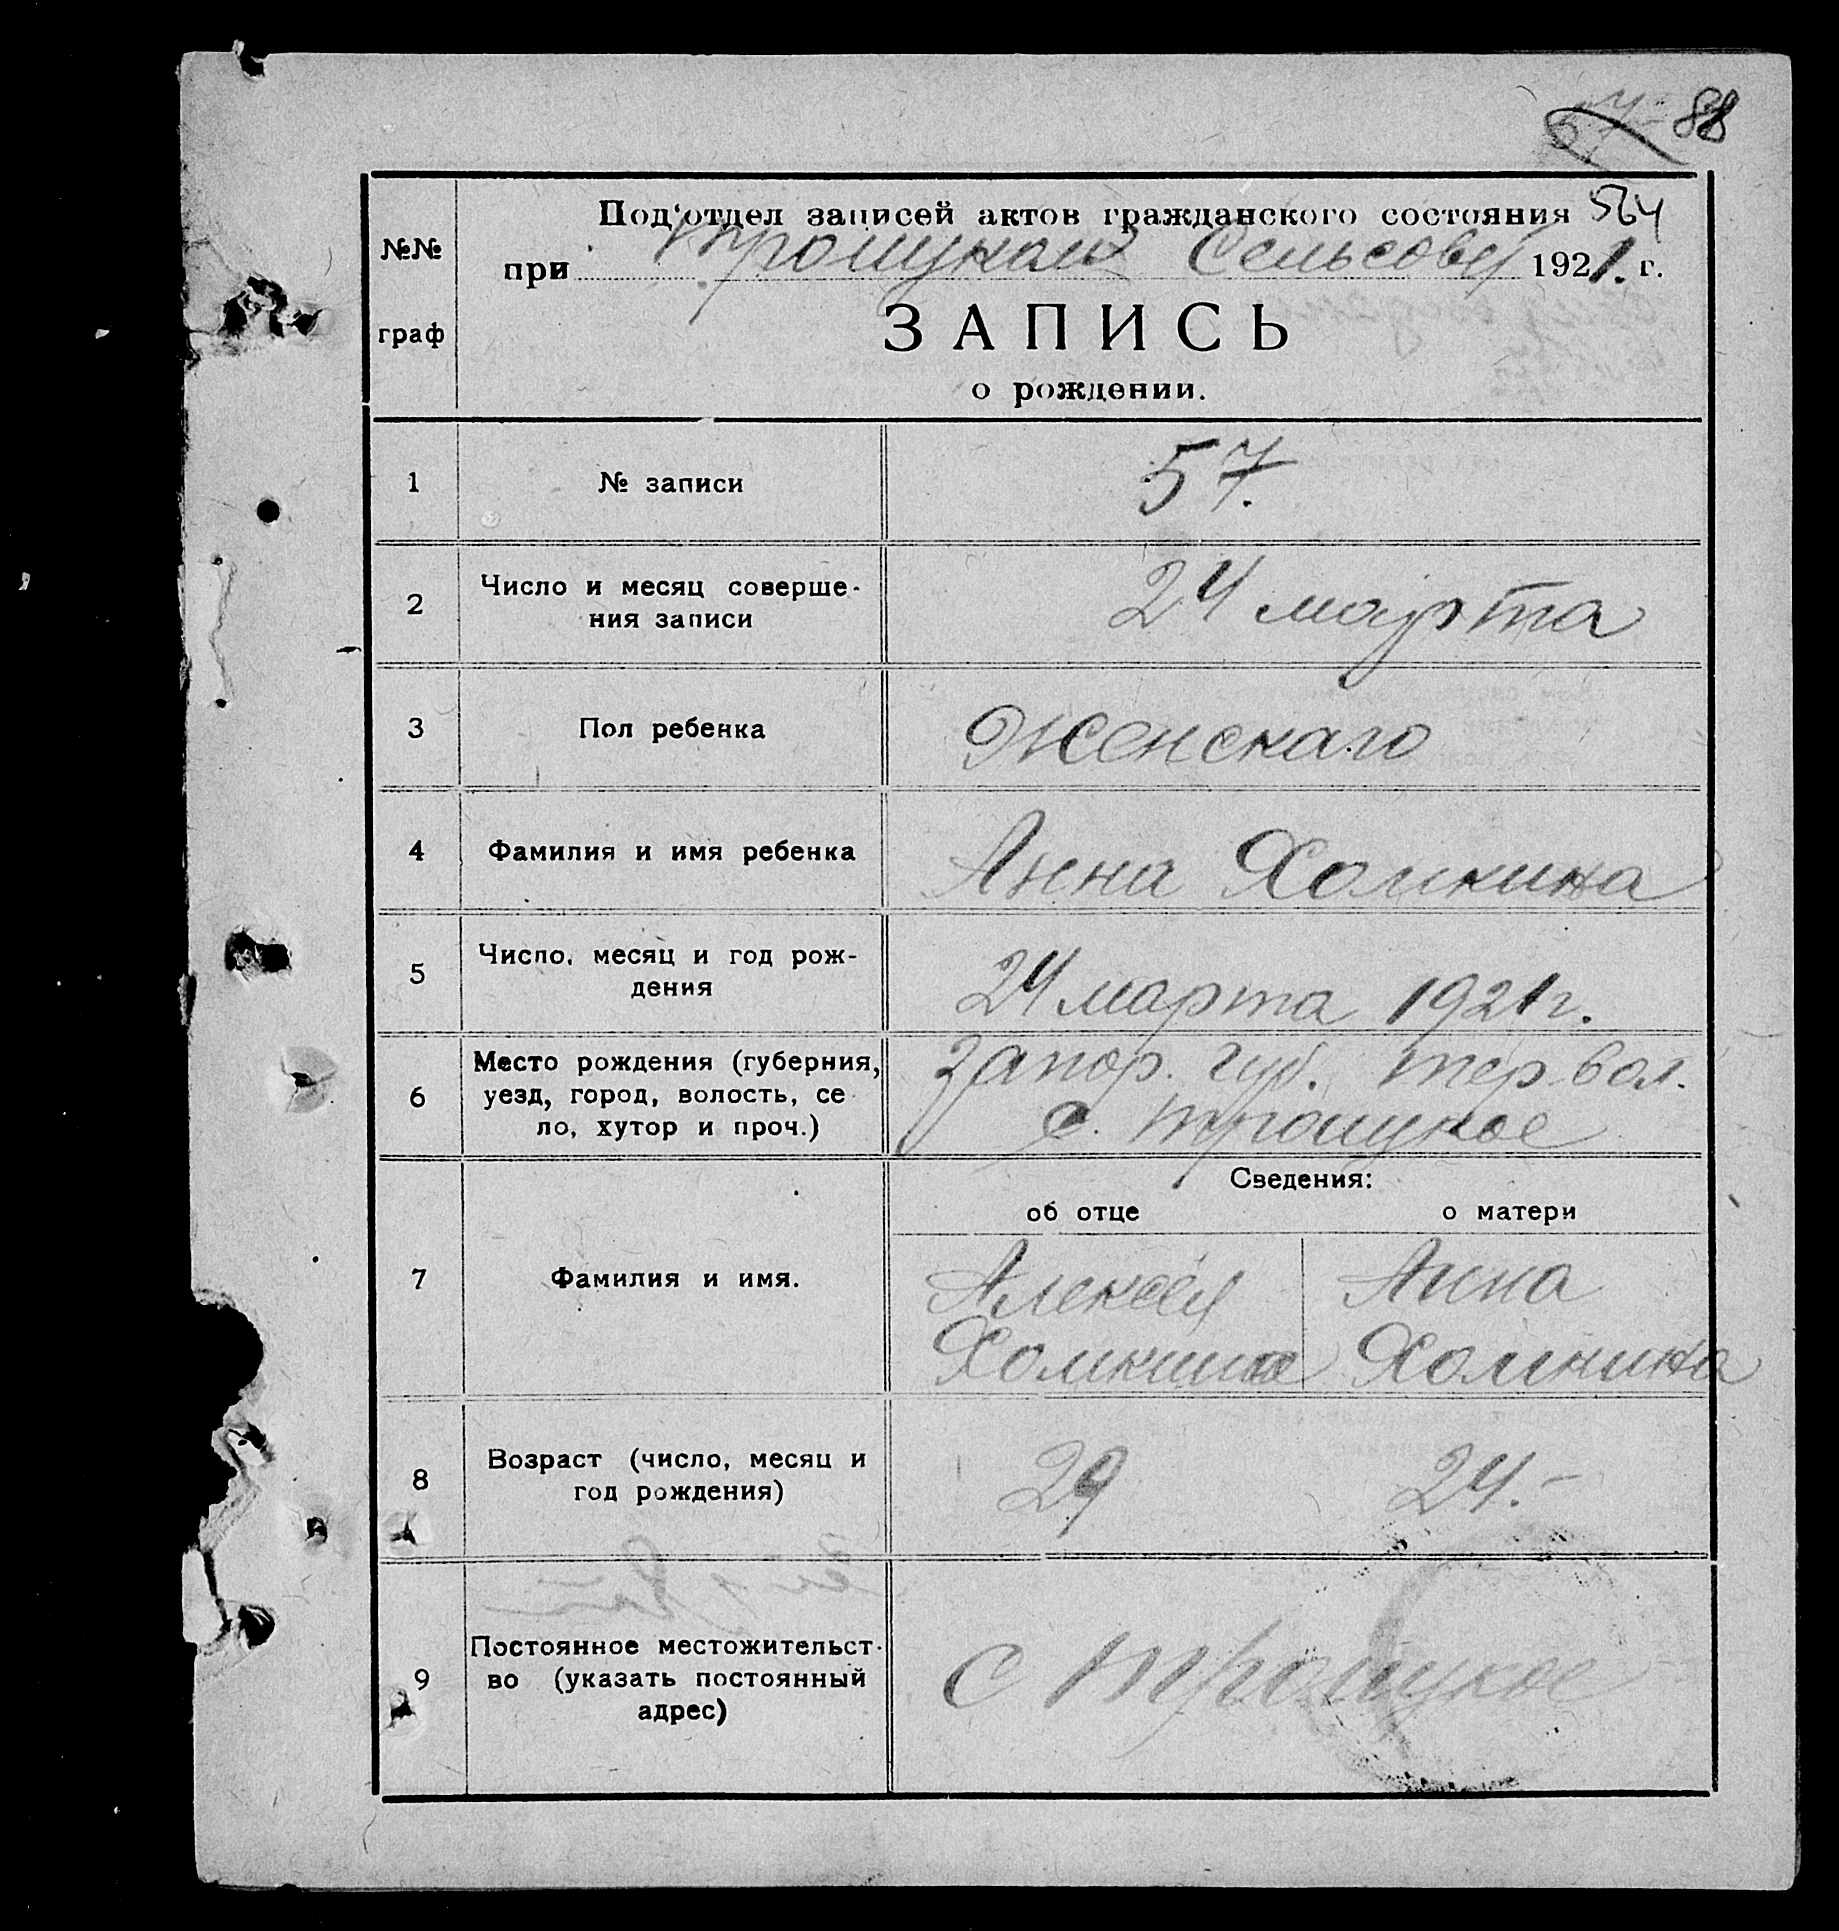 57 88
Под'отдел записей актов гражданского состояния 564
при Троицком Сельсовет 1921. г.
№№
граф
ЗАПИСЬ
о рождении.
1 № записи 57.
2 Число и месяц соверше-
ния записи 24 марта
3 Пол ребенка Женскаго
4 Фамилия и имя ребенка Анна Хомкина
5 Число, месяц и год рож-
дения 24 марта 1921 г.
6 Место рождения (губерния,
уезд, город, волость, се
ло, хутор и проч.) Запор. губ. Тер вол.
с. Троицкое
Сведения:
об отце о матери
7 Фамилия и имя. Алексей Анна
Хомкина Хомкина
8 Возраст (число, месяц и
год рождения) 29 24.-
9 Постоянное местожительст-
во (указать постоянный
адрес) с Троицкое